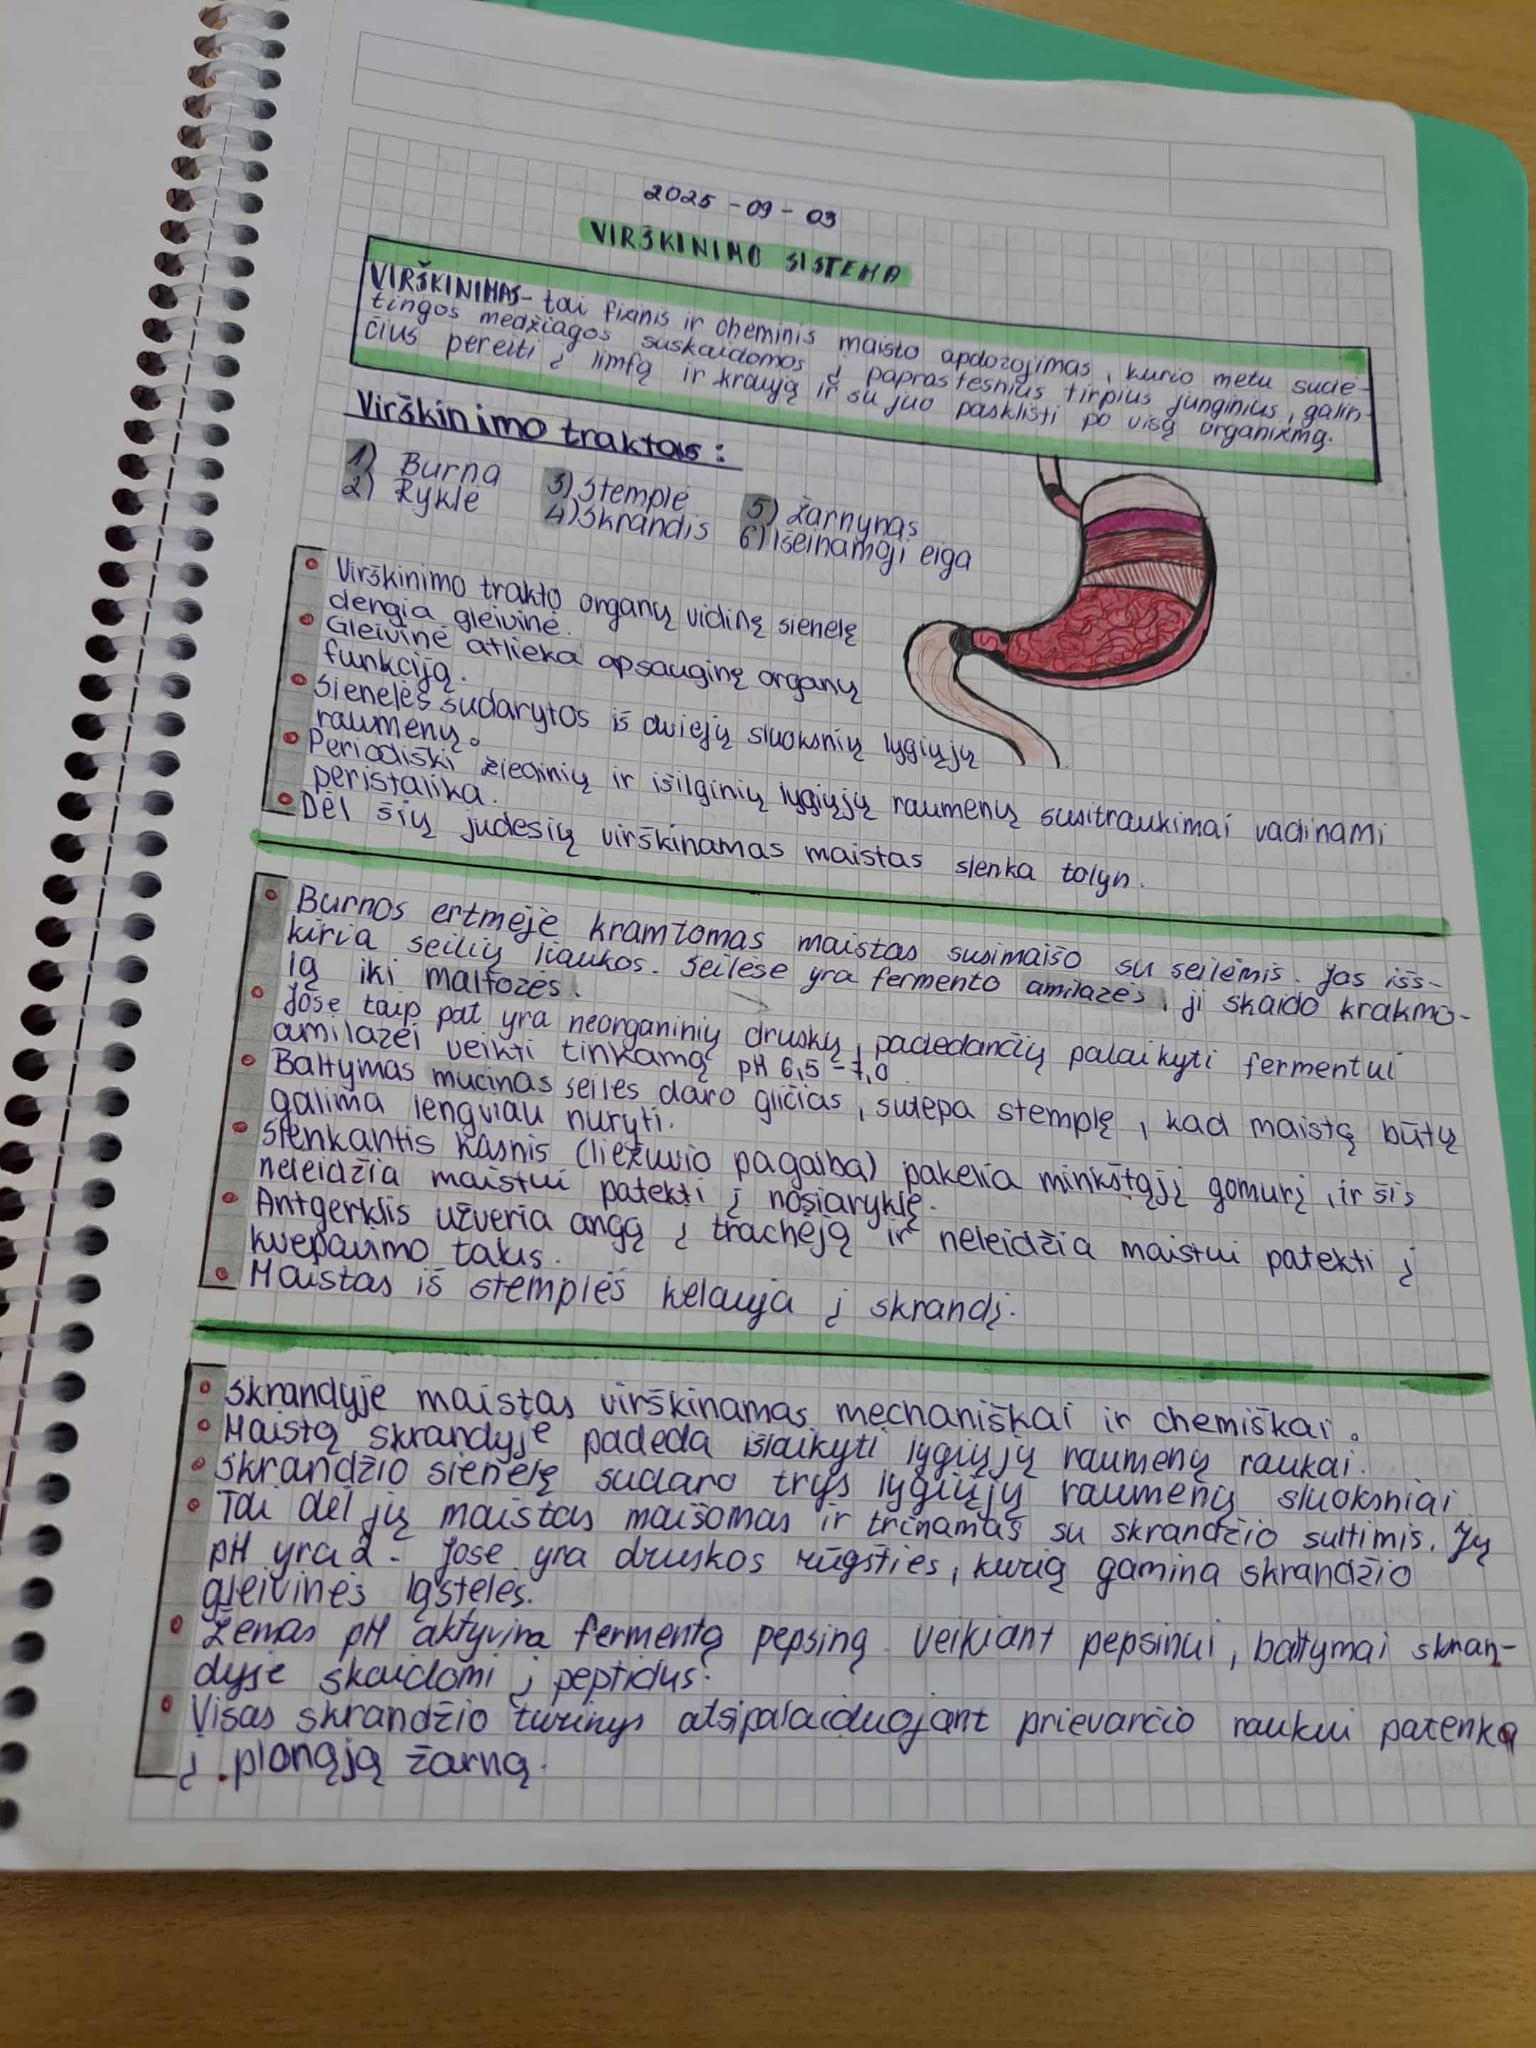 2025-09-03
VIRŠKINIMO SISTEMA
VIRŠKINIMAS- tai fizinis ir cheminis maisto apdorojimas, kurio metu sudė-
tingos medžiagos suskaidomos į paprastesnius tirpius junginius, galin-
čius pereiti į limfą ir kraują ir su juo pasklisti po visą organizmą.
Virškinimo traktas:
1) Burna
2) Ryklė
3) Stemplė
4) Skrandis
5) Žarnynas
6) Išeinamoji eiga
• Virškinimo trakto organų vidinę sienelę
dengia gleivinė.
• Gleivinė atlieka apsauginę organų
funkciją.
• Sienelės sudarytos iš dviejų sluoksnių lygiųjų
raumenų.
• Periodiški žiedinių ir išilginių lygiųjų raumenų susitraukimai vadinami
peristalika.
• Dėl šių judesių virškinamas maistas slenka tolyn.
• Burnos ertmėje kramtomas maistas susimaišo su seilėmis. Jas išs-
kiria seilių liaukos. Seilėse yra fermento amilazės, ji skaido krakmo-
lą iki maltozės.
• Jose taip pat yra neorganinių druskų, padedančių palaikyti fermentui
amilazei veikti tinkamą pH 6,5-7,0
• Baltymas mucinas seiles daro gličias, sutepa stemplę, kad maistą būtų
galima lengviau nuryti.
• Slenkantis kąsnis (liežuvio pagalba) pakelia minkštąjį gomurį, ir šis
neleidžia maistui patekti į nosiaryklę.
• Antgerklis užveria angą į trachėją ir neleidžia maistui patekti į
kvėpavimo takus.
• Maistas iš stemplės keliauja į skrandį.
• Skrandyje maistas virškinamas mechaniškai ir chemiškai.
• Maistą skrandyje padeda išlaikyti lygiųjų raumenų raukai.
• Skrandžio sienelę sudaro trys lygiųjų raumenų sluoksniai
• Tai dėl jų maistas maišomas ir trinamas su skrandžio sultimis. Jų
pH yra 2. Jose yra druskos rūgšties, kurią gamina skrandžio
gleivinės ląstelės.
• Žemas pH aktyvina fermentą pepsiną. Veikiant pepsinui, baltymai skran-
dyje skaidomi į peptidus.
• Visas skrandžio turinys atsipalaiduojant prievarčio raukui patenka
į plonąją žarną.